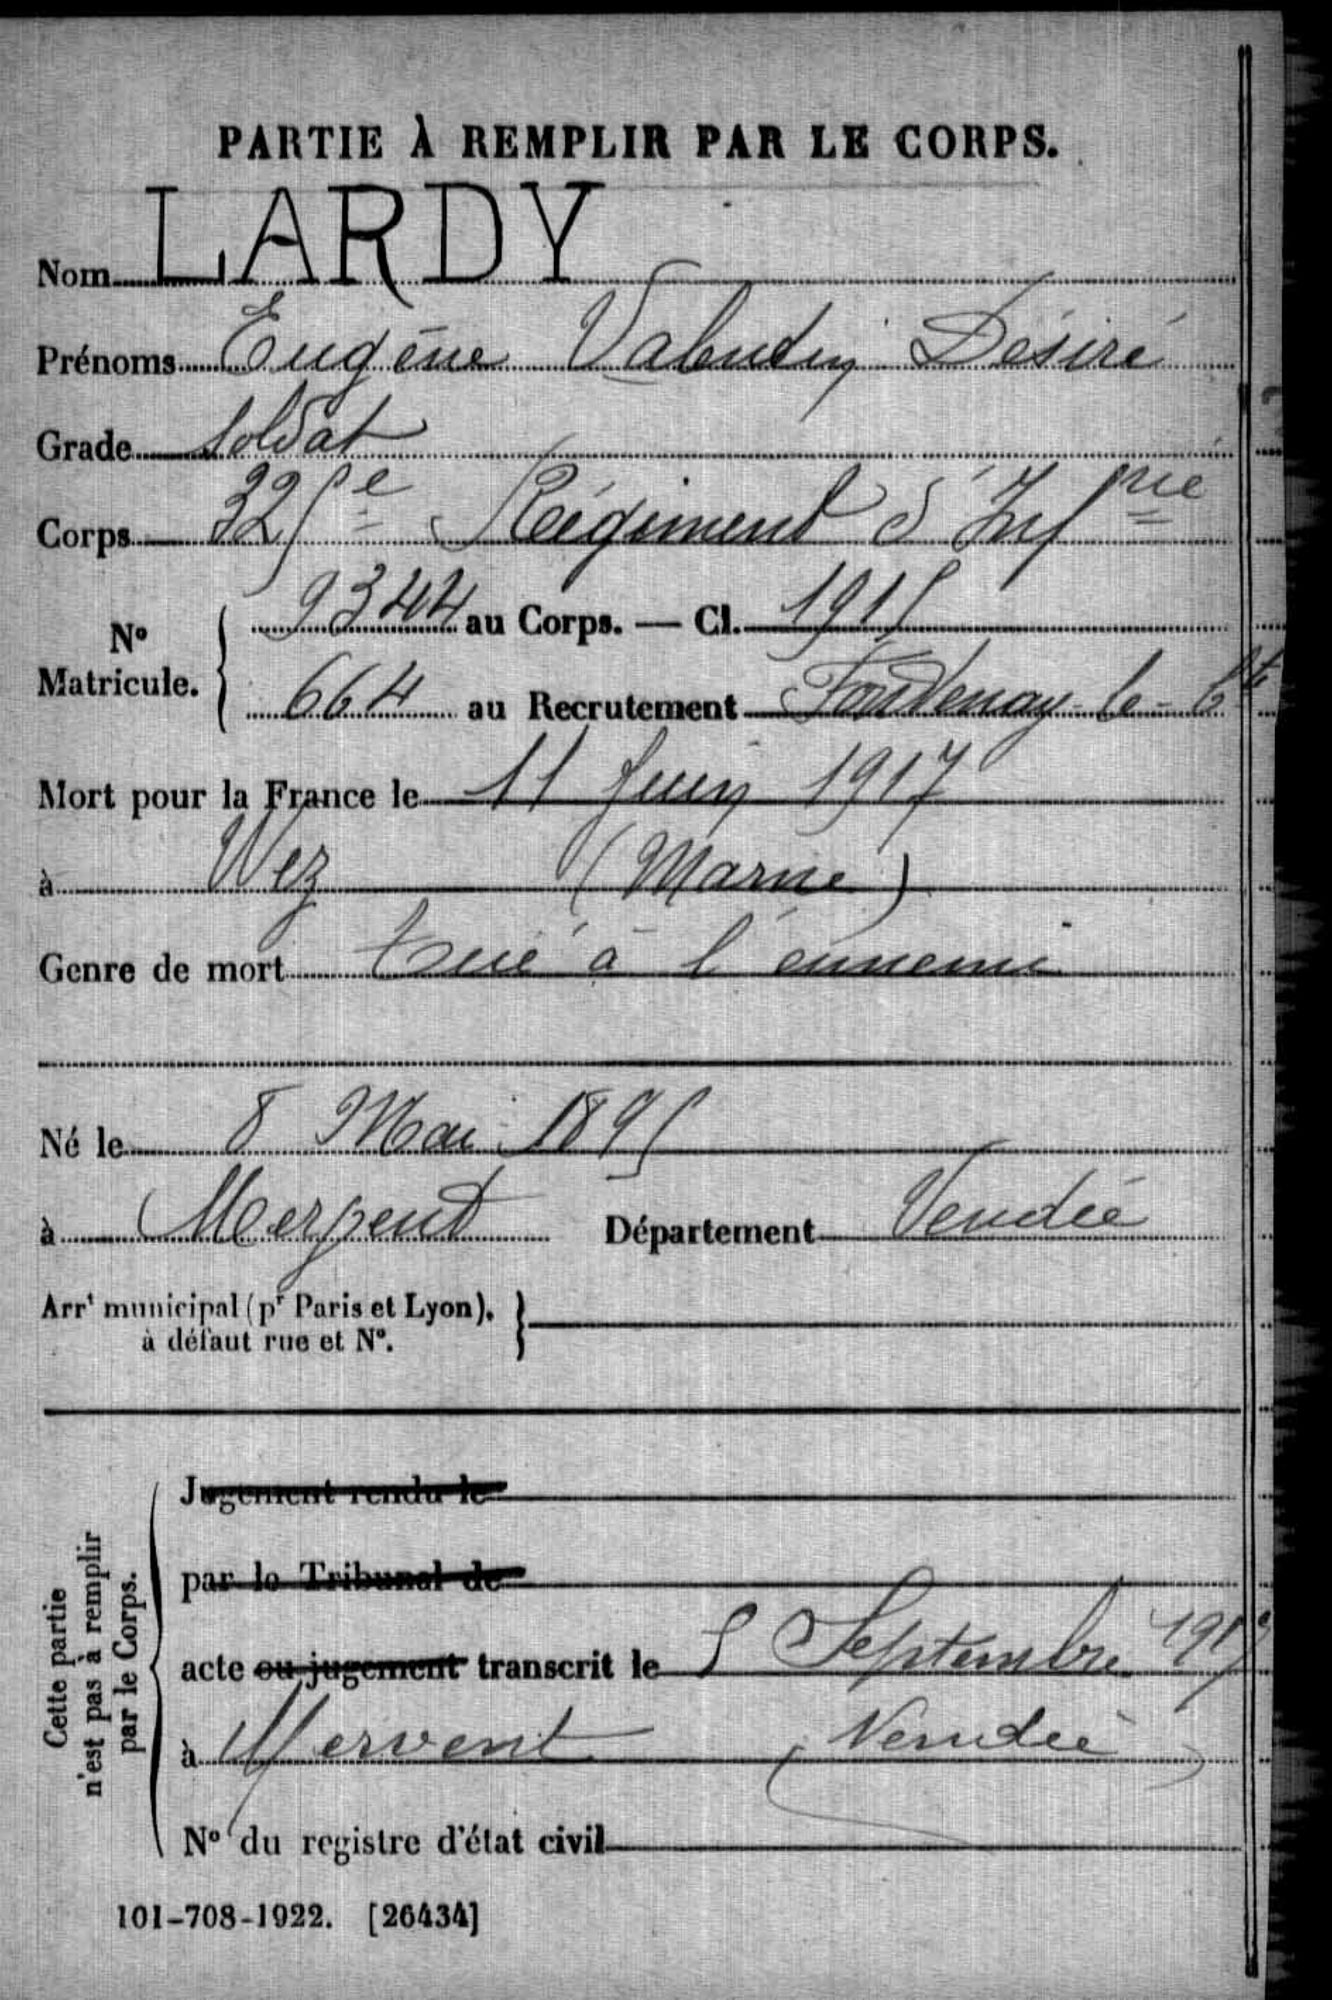 PARTIE À REMPLIR PAR LE CORPS.
Nom LARDY
Prénoms Eugène Valentin Désiré
Grade Soldat
Corps 325e Régiment d'Infrie
No Matricule. 9344 au Corps. — Cl. 1915
664 au Recrutement Fontenay-le-Cte
Mort pour la France le 11 Juin 1917
à Wez (Marne)
Genre de mort tué à l'ennemi
Né le 8 Mai 1895
à Mervent Département Vendée
Arrt municipal (pr Paris et Lyon),
à défaut rue et No.
Cette partie
n'est pas à remplir
par le Corps.
Jugement rendu le
par le Tribunal de
acte ou jugement transcrit le 5 Septembre 1917
à Mervent (Vendée)
No du registre d'état civil
101-708-1922. [26434]